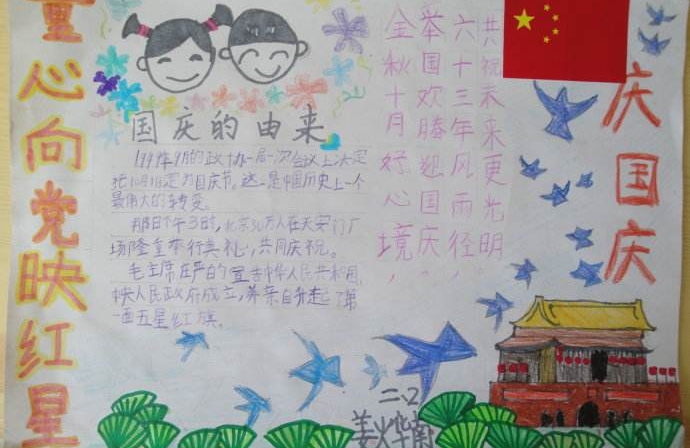 童心向党映红星
国庆的由来
1949年9月的政协一届一次会议上决定
把10月1日定为国庆节。这一是中国历史上一个
最伟大的转变
那日下午3时,北京30万人在天安门广
场隆重举行典礼,共同庆祝。
毛主席庄严的宣告中华人民共和国,
中央人民政府成立,并亲自升起了第
一面五星红旗。
金秋十月好心境,
举国欢腾迎国庆,
六十三年风雨径,
共祝未来更光明
庆国庆
二